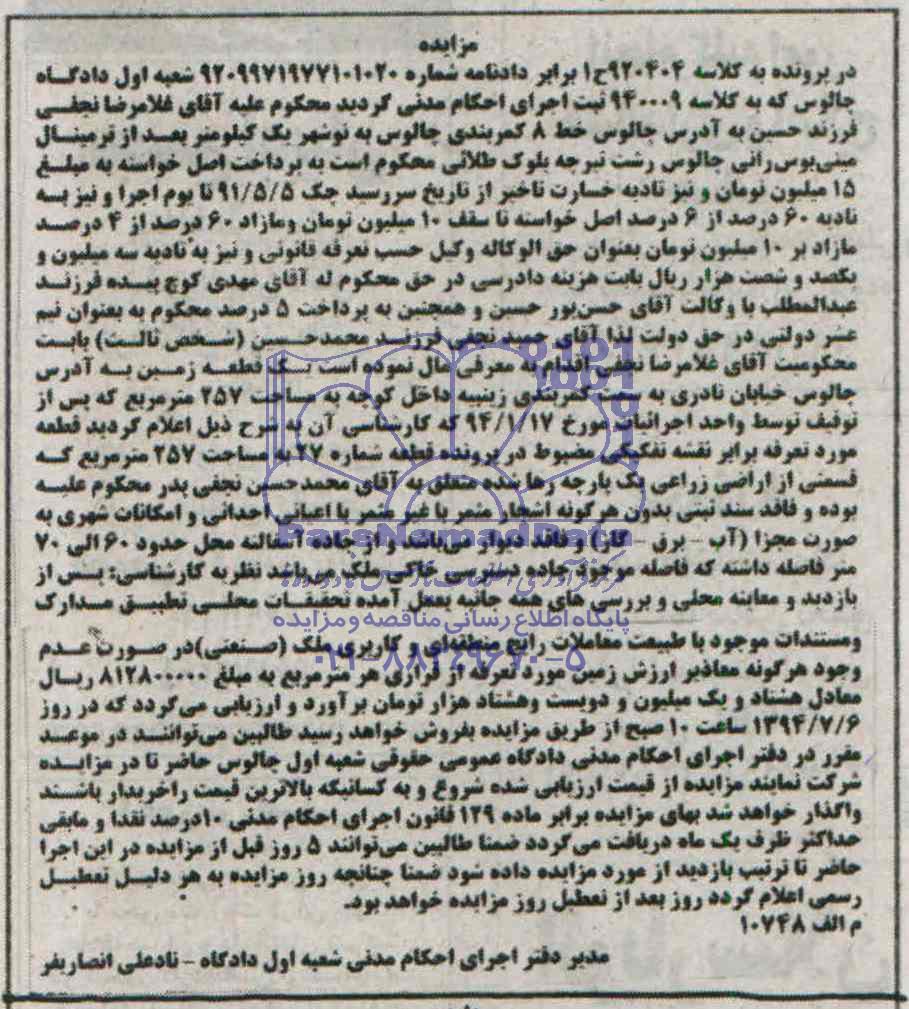 مزایده
در پرونده به کلاسه ۹۲۰۴۰۴ح۱ برابر دادنامه شماره ۹۲۰۹۹۷۱۹۷۷۱۰۱۰۲۰ شعبه اول دادگاه
چالوس که به کلاسه ۹۴۰۰۰۹ ثبت اجرای احکام مدنی گردید محکوم علیه آقای غلامرضا نجفی
فرزند حسین به آدرس چالوس خط ۸ کمربندی چالوس به نوشهر یک کیلومتر بعد از ترمینال
مینی‌بوس‌رانی چالوس رشت نبرچه بلوک طلائی محکوم است به پرداخت اصل خواسته به مبلغ
۱۵ میلیون تومان و نیز تادیه خسارت تاخیر از تاریخ سررسید چک ۹۱/۵/۵ تا یوم اجرا و نیز به
تادیه ۶۰ درصد از ۶ درصد اصل خواسته تا سقف ۱۰ میلیون تومان ومازاد ۶۰ درصد از ۴ درصد
مازاد بر ۱۰ میلیون تومان بعنوان حق الوکاله وکیل حسب تعرفه قانونی و نیز به تادیه سه میلیون و
یکصد و شصت هزار ریال بابت هزینه دادرسی در حق محکوم له آقای مهدی کوچ پیده فرزند
عبدالمطلب با وکالت آقای حسن‌پور حسین و همچنین به پرداخت ۵ درصد محکوم به بعنوان نیم
عشر دولتی در حق دولت لذا آقای حمید نجفی فرزند محمدحسین (شخص ثالث) بابت
محکومیت آقای غلامرضا نجفی اقدام به معرفی مال نموده است یک قطعه زمین به آدرس
چالوس خیابان نادری به سمت کمربندی زینبیه داخل کوچه به مساحت ۲۵۷ مترمربع که پس از
توقیف توسط واحد اجرائیات مورخ ۹۴/۱/۱۷ که کارشناسی آن به شرح ذیل اعلام گردید قطعه
مورد تعرفه برابر نقشه تفکیکی مضبوط در پرونده قطعه شماره ۲۷ به مساحت ۲۵۷ مترمربع که
قسمتی از اراضی زراعی یک پارچه رها شده متعلق به آقای محمدحسین نجفی پدر محکوم علیه
بوده و فاقد سند ثبتی بدون هرگونه اشجار مثمر یا غیر مثمر یا اعیانی احداثی و امکانات شهری به
صورت مجزا (آب - برق - گاز) و فاقد دیوار می‌باشد و از جاده آسفالته محل حدود ۶۰ الی ۷۰
متر فاصله داشته که فاصله موجود جاده دسترسی خاکی ملک می‌باشد نظریه کارشناسی: پس از
بازدید و معاینه محلی و بررسی های همه جانبه بعمل آمده تحقیقات محلی تطبیق مدارک
ومستندات موجود با طبیعت معاملات رایج منطقه‌ای و کاربری ملک (صنعتی)در صورت عدم
وجود هرگونه معاذیر ارزش زمین مورد تعرفه از قراری هر مترمربع به مبلغ ۸۱۲۸۰۰۰۰۰ ریال
معادل هشتاد و یک میلیون و دویست وهشتاد هزار تومان برآورد و ارزیابی می‌گردد که در روز
۱۳۹۴/۷/۶ ساعت ۱۰ صبح از طریق مزایده بفروش خواهد رسید طالبین می‌توانند در موعد
مقرر در دفتر اجرای احکام مدنی دادگاه عمومی حقوقی شعبه اول چالوس حاضر تا در مزایده
شرکت نمایند مزایده از قیمت ارزیابی شده شروع و به کسانیکه بالاترین قیمت راخریدار باشند
واگذار خواهد شد بهای مزایده برابر ماده ۱۲۹ قانون اجرای احکام مدنی ۱۰درصد نقدا و مابقی
حداکثر ظرف یک ماه دریافت می‌گردد ضمنا طالبین می‌توانند ۵ روز قبل از مزایده در این اجرا
حاضر تا ترتیب بازدید از مورد مزایده داده شود ضمنا چنانچه روز مزایده به هر دلیل تعطیل
رسمی اعلام گردد روز بعد از تعطیل روز مزایده خواهد بود.
م الف ۱۰۷۴۸
مدیر دفتر اجرای احکام مدنی شعبه اول دادگاه - نادعلی انصاریفر
ParsNamadData
پایگاه اطلاع رسانی مناقصه و مزایده
۰۲۱-۸۸۳۴۹۶۷۰-۵